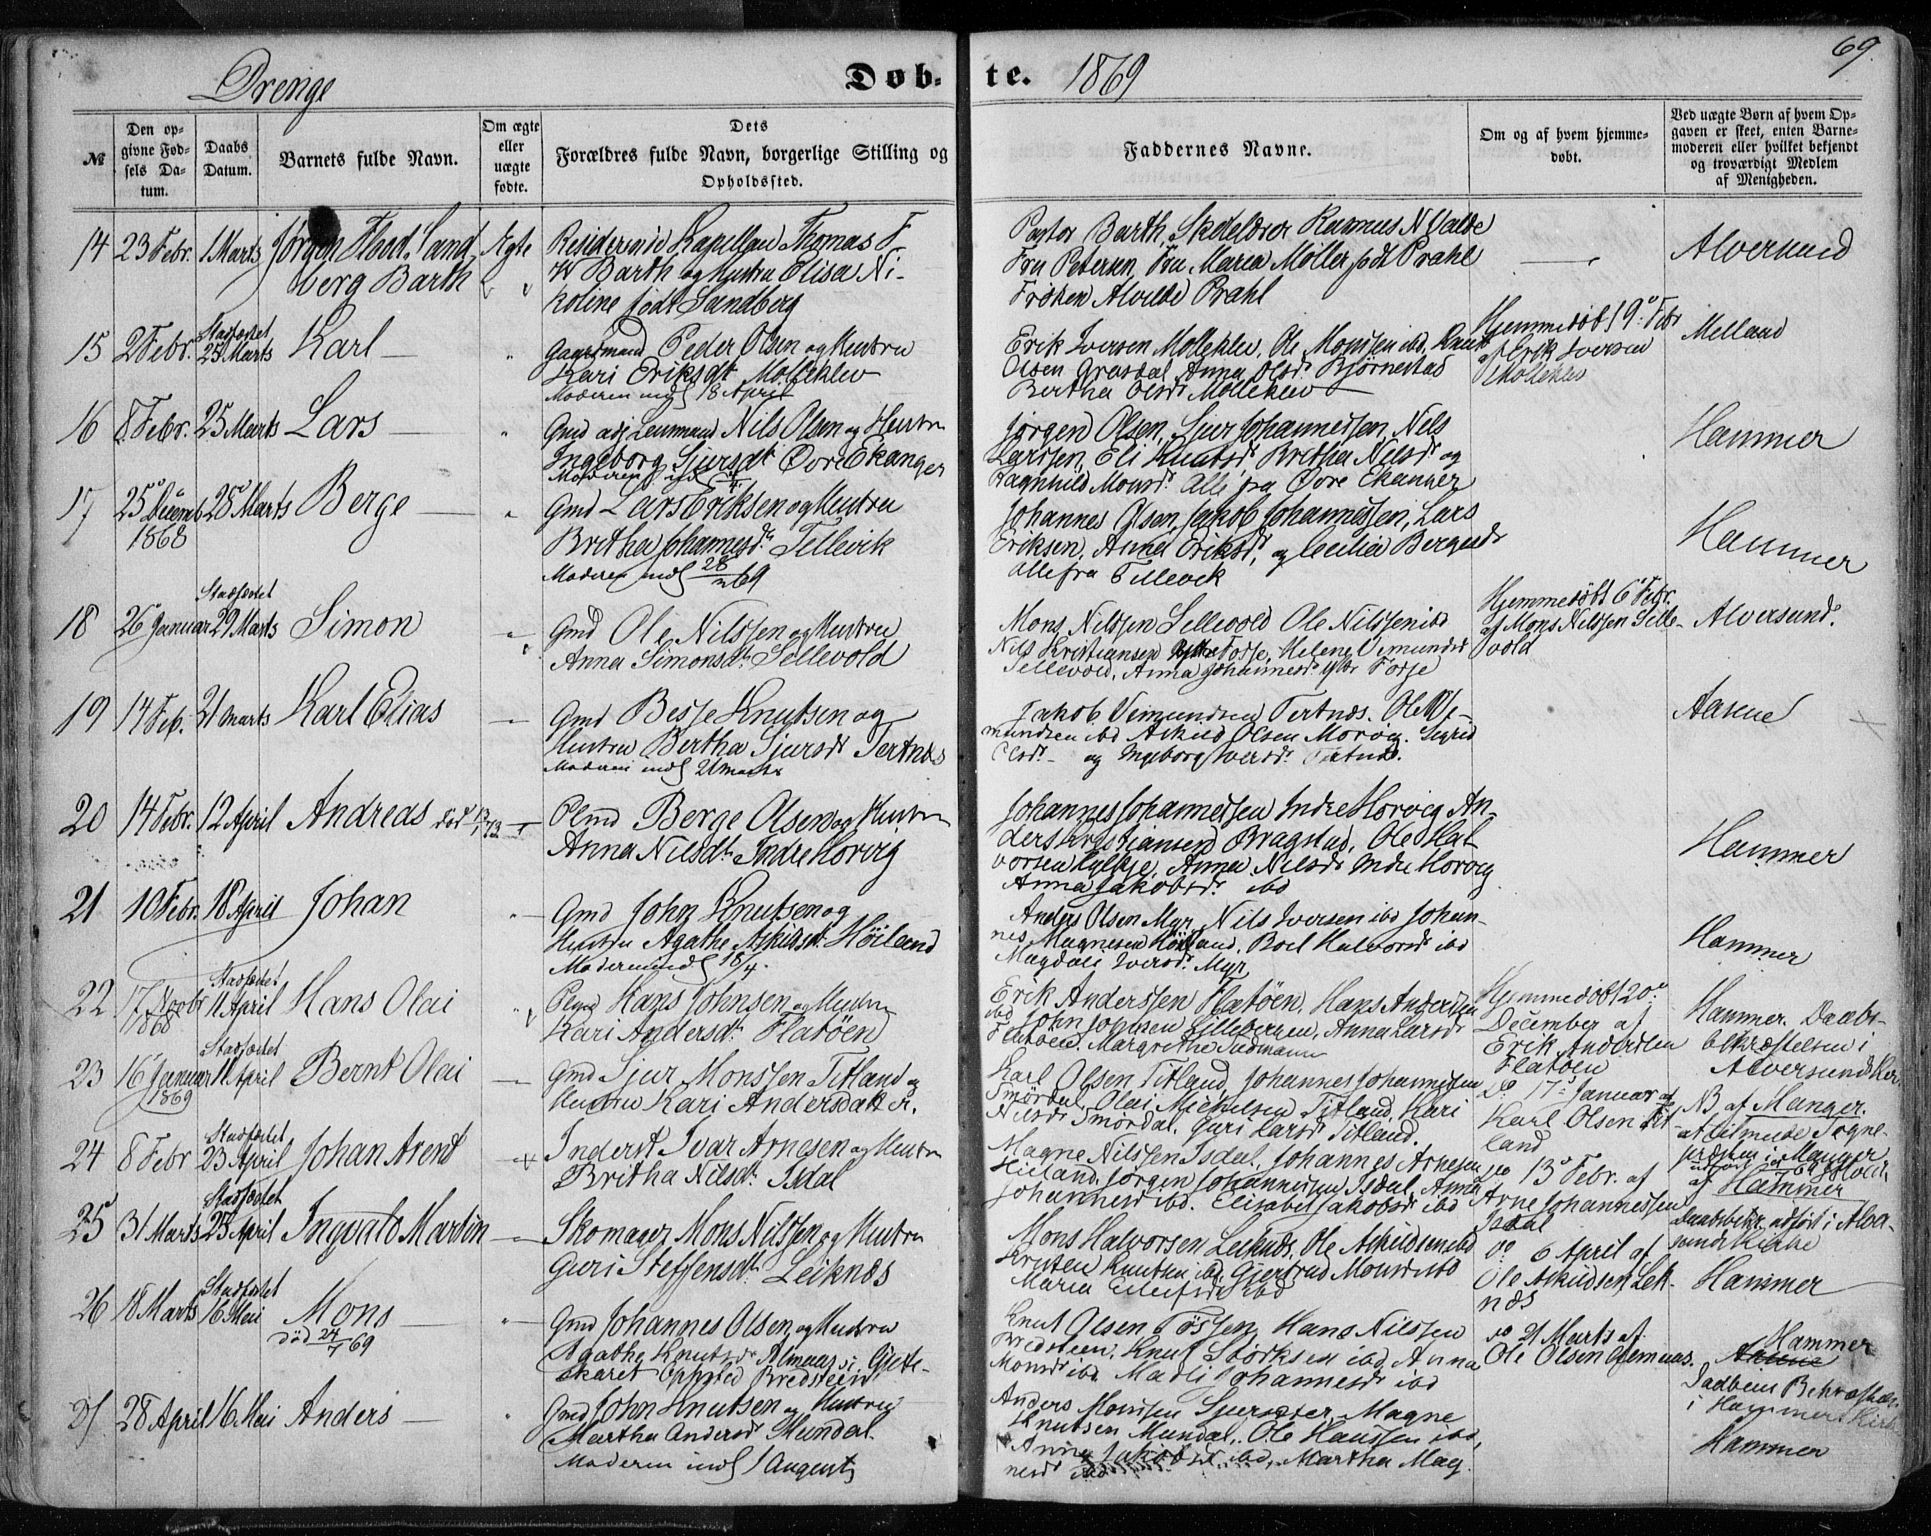 69.
Drenge
Døb-
te. 1869
№
Den op-
givne Fød-
sels Da-
tum.
Daabs
Datum.
Barnets fulde Navn.
Om ægte
eller
uægte
fødte.
Dets
Forældres fulde Navn, borgerlige Stilling og
Opholdssted.
Faddernes Navne.
Om og af hvem hjemme-
døbt.
Ved uægte Børn af hvem Op-
gaven er skeet, enten Barne-
moderen eller hvilket bekjendt
og troværdigt Medlem
af Menigheden.
14 23 Febr. 1 Marts Jørgen Flood Sand-
berg Barth
Ægte
Residerende Kapellan Thomas F.
W Barth og Hustru Elisa Ni-
koline født Sandberg
Pastor Barth, Rasmus N Valde
Fru Petersen, Fru Maria Møller født Prahl
Frøken Alvilde Prahl
Alversund
15 2 Febr. Stadfæstet
25 Marts Karl
Gaardmand Peder Olsen og Hustru
Kari Eriksdt. Molleklev
Moderen indl 18 April
Erik Iversen Molleklev, Ole Monssen ibd, Knut
Olsen Grasdal, Anna Olsdr Bjørnestad
Bertha Olsdr Molleklev
Hjemmedøbt 9 Febr
af Erik Iversen
Molleklev
Melland
16 8 Febr. 25 Marts Lars
Gmd adj Lensmand Nils Olsen og Hustru
Ingeborg Sjursdt. Øvre Ekanger
Jørgen Olsen, Sjur Johannessen, Nils
Larssen, Eli Knutsdr, Britha Nilsdr og
Ragnhild Monsdr. Alle paa Øvre Ekanger
Hammer
17 25 Decemb 28 Marts Berge
1868
Gmd Lars Eriksen og Hustru
Britha Johannesdt. Tellevik
Moderen indl 28/3 69
Johannes Olsen, Jakob Johannessen, Lars
Eriksen, Anna Eriksdr, og Cecilia Bergesdr
alle fra Tellevik
Hammer
18 26 Januar Stadfæstet
29 Marts Simon
Gmd Ole Nilssen og Hustru
Anna Simonsdt. Sellevold
Mons Nilssen Sellevold Ole Nilssen ibd
Nils Kristiansen Yttre Fosse, Helene Vemundsdr
Sellevold, Anna Johannesdr Yttre Fosse
Hjemmedøbt 6 Febr.
af Mons Nilssen Selle-
vold
Alversund.
19 14 Feb. 21 Marts Karl Elias
Gmd Besse Knutsen og
Hustru Bertha Sjursdt Tertnæs
Moderen indl 21 Marts
Jakob Vemundsen Tertnæs. Ole Ve-
mundsen ibd Askild Olsen Morvig. Sigrid
Olsdr og Ingeborg Iversdr. Tertnæs.
Aasene
20 14 Febr. 12 April Andreas død
Plmd Berge Olsen og Hustru
Anna Nilsdt. Indre Horvig
Johannes Johannessen Indre Horvig An-
ders Kristiansen Bragstad, Ole Hal-
vorsen, Anna Nilsdr Indre Horvig
Anna Jakobsdr. ibd
Hammer
21 10 Febr. 18 April Johan
Gmd John Knutsen og
Hustru Agathe Askildsdt. Høiland
Moderen indl 18/4.
Anders Olsen Myr, Nils Iversen ibd Johan-
nes Magnesen Høiland. Boel Halvorsdr ibd
Magdali Iversdr. Myr
Hammer
22 17 Novbr Stadfæstet
11 April Hans Olai
1868
Plmd Hans Johnsen og Hustru
Kari Andersdt. Flatøen
Erik Anderssen Flatøen, Hans Andersen
ibd John Johnsen Lillebergen, Anna Larsdr
Flatøen. Margrethe
Hjemmedøbt 20
December af
Erik Andersen
Flatøen
Hammer. Daabs-
bekræftelsen i
Alversunds Kir.
23 16 Januar Stadfæstet
11 April Bernt Olai
1869
Gmd Sjur Monssen Titland og
Hustru Kari Andersdatter.
Karl Olsen Titland, Johannes Johannessen
Smørdal, Olai Michelsen Titland, Kari
Nilsdr Smørdal, Guri Larsdr Titland.
do 17 Januar af
Karl Olsen Tit-
land
NB af Manger.
24 8 Febr Stadfæstet
23 April Johan Arent
Inderst Ivar Arnesen og Hustru
Britha Nilsdt. Isdal
Magne Nilssen Isdal, Johannes Arnesen
Høiland, Jørgen Johannessen Isdal, Anna
Johannesdr ibd. Elisabet Jakobsdr ibd
do 13 Febr. af
Arne Johannessen
Isdal
af Hammer
25 31 Marts Stadfæstet
25 April Ingvald Martin
Skomager Mons Nilssen og Hustru
Guri Steffensdt. Leiknæs
Mons Halvorsen Leiknæs, Ole Askildsen ibd
Knutsen ibd, Gjertrud Monsdr ibd
Maria ibd
do 6 April af
Ole Askildsen Leik-
næs
Hammer
26 18 Marts Stadfæstet
16 Mai Mons
død 24/7 69
Gmd Johannes Olsen og Hustru
Agatha Knutsdr Almaas i Gjete-
skaret Bredsteen
Knut Olsen Tøssen, Hans Nilssen
Bredsteen, Knut Størksen ibd, Anna
Monsdr ibd Madli Johannesdr ibd
do 21 Marts af
Ole Olsen
Hammer
27 28 April 16 Mai Anders
Gmd John Knutsen og Hustru
Martha Andersdt Mundal.
Moderen indl 1 August
Anders Monssen Magne
Knutsen Mundal, Ole Hanssen ibd,
Anna Jakobsd ibd, Martha Mag-
nesdr ibd
Hammer